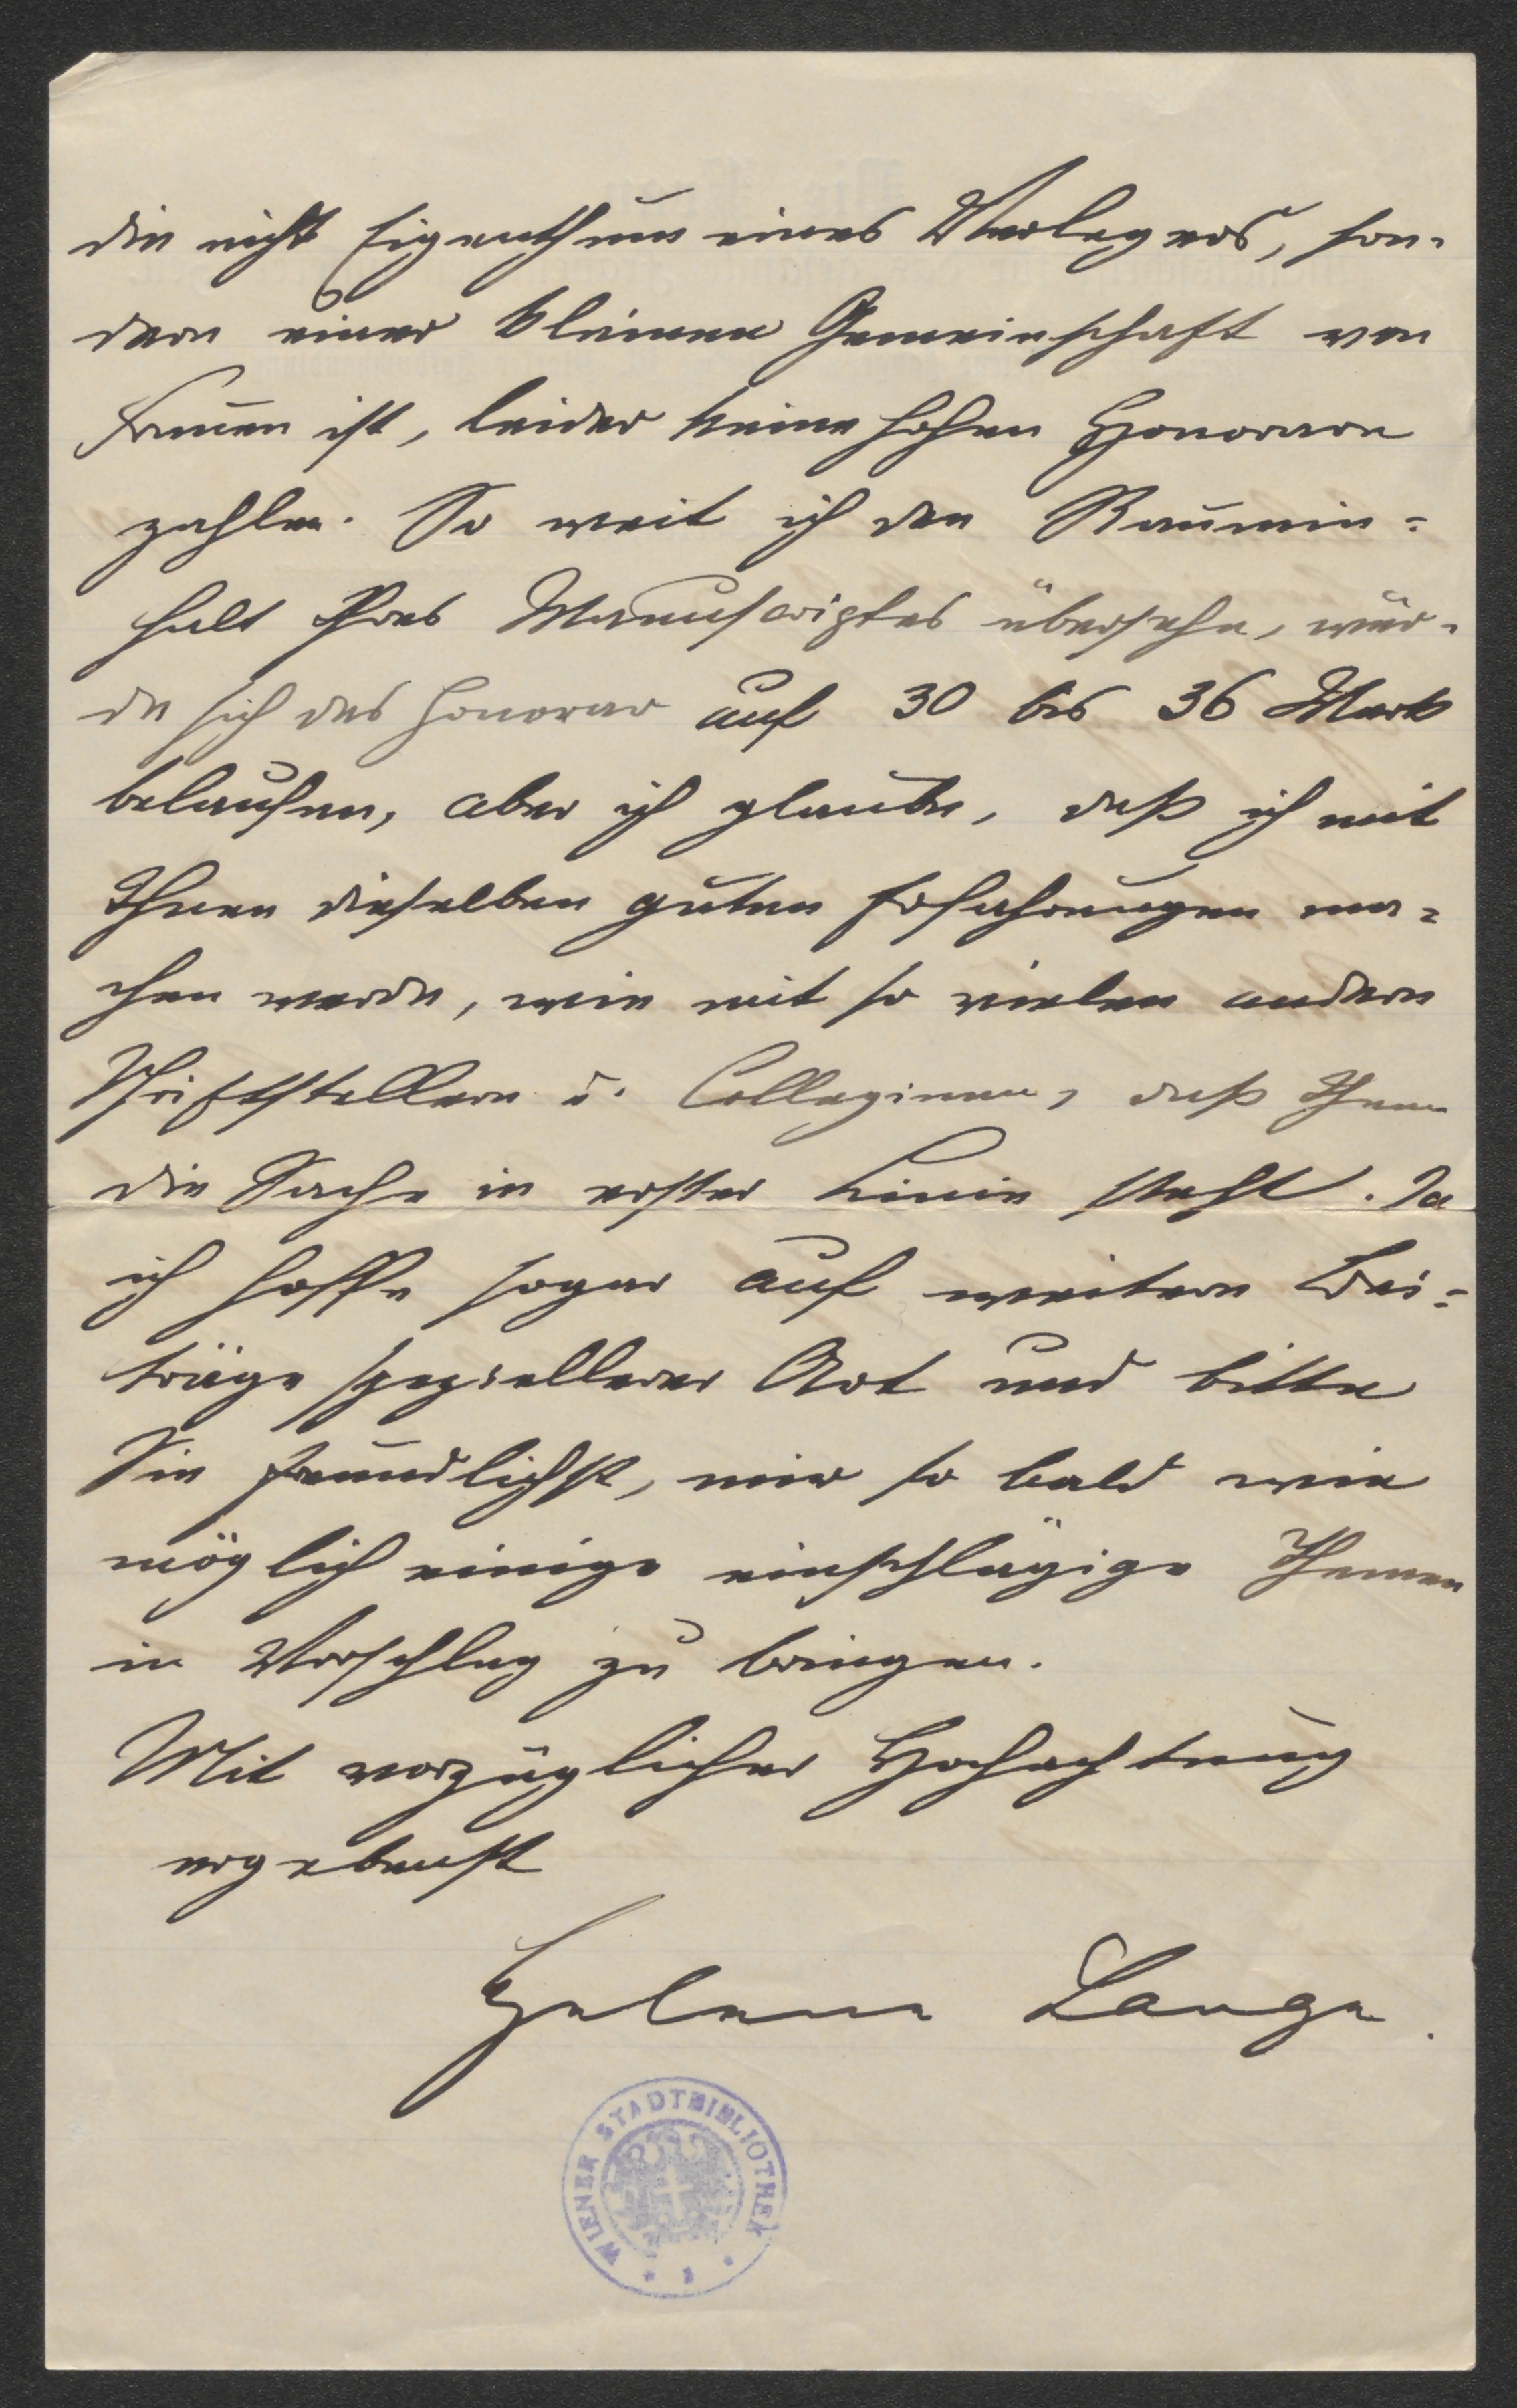 die nicht Eigenthum eines Verlegers, son-
dern einer kleinen Gemeinschaft von
Frauen ist, leider keine hohen Honorare
zahlen. So weit ich den Raumin-
halt Ihres Manuscriptes übersehe, wür-
de sich das Honorar auf 30 bis 36 Mark
belaufen, aber ich glaube, daß ich mit
Ihnen dieselben guten Erfahrungen ma-
chen werde, wie mit so vielen andern
Schriftstellern u. Colleginnen, daß Ihnen
die Sache in erster Linie steht. Ja
ich hoffe sogar auf weitere Bei-
träge spezellerer Art und bitte
Sie freundlichst, mir so bald wie
möglich einige einschlägige Themen
in Vorschlag zu bringen.
Mit vorzüglicher Hochachtung
ergebenst
Helene Lange.
WIENER STADTBIBLIOTHEK